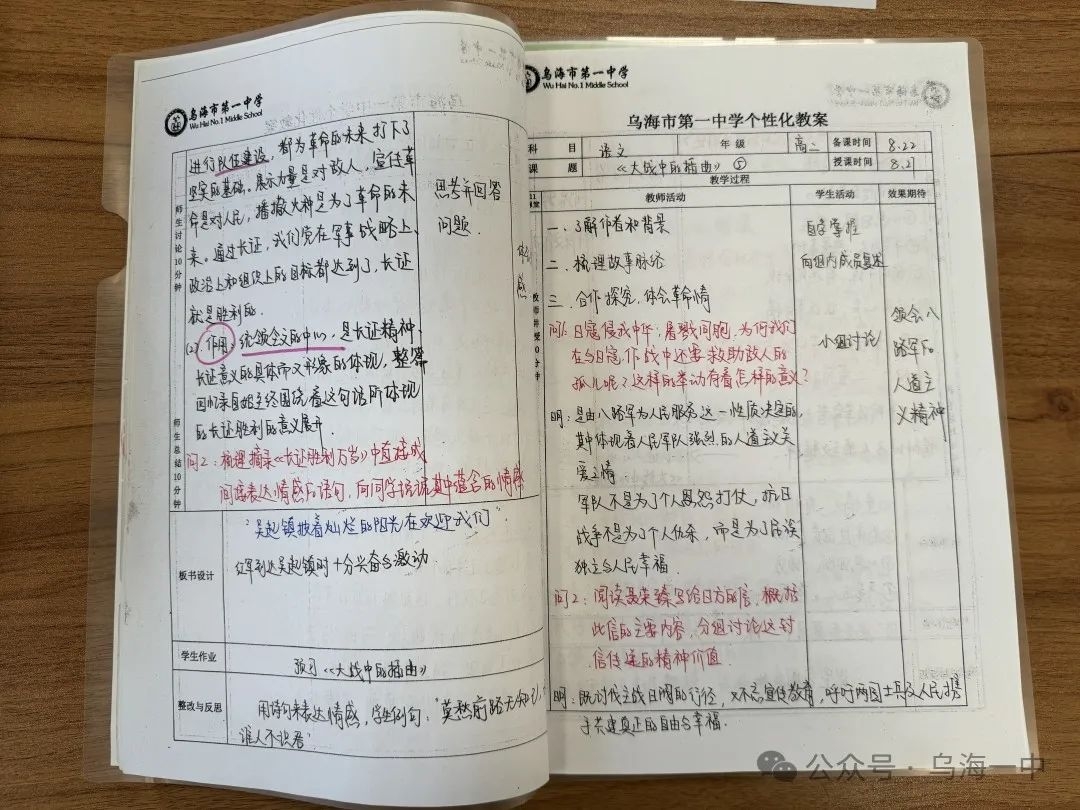 乌海市第一中学
Wu Hai No.1 Middle School
进行队伍建设，都为革命的未来打下了
坚实的基础。展示力量是对敌人，宣传革
命是对人民，播撒火种是为了革命的未
来。通过长征，我们党在军事战略上、
政治上和组织上的目标都达到了，长征
就是胜利的。
(2) 作用：统领全文的中心，是长征精神、
长征意义的具体而又形象的体现，整篇
回忆录自始至终围绕着这句话所体现
的长征胜利的意义展开。
问2：梳理摘录《长征胜利万岁》中直接或
间接表达情感的语句，向同学说说其中蕴含的情感
思考并回答
问题.
师生讨论10分钟
师生总结10分钟
板书设计
"吴起镇披着灿烂的阳光在欢迎我们"
红军到达吴起镇时十分兴奋与激动
学生作业
预习《大战中的插曲》
整改与反思
用诗句来表达情感，学生例句："莫愁前路无知己，
谁人不识君"
乌海市第一中学
Wu Hai No.1 Middle School
乌海市第一中学个性化教案
科 目
语文
年 级
高二
备课时间
8.22
课 题
《大战中的插曲》⑤
授课时间
8.27
教学过程
教师活动
学生活动
效果期待
一. 了解作者和背景
自主掌握
二. 梳理故事脉络
向组内成员复述
三. 合作探究，体会革命情
问1：日寇侵我中华，屠戮同胞，为何我们
在与日寇作战中还要救助敌人的
孤儿呢？这样的举动有着怎样的意义？
小组讨论
领会八
路军的
人道主
义精神
明：是由八路军为人民服务这一性质决定的，
其中体现着人民军队强烈的人道主义关
爱之情
军队不是为了个人恩怨打仗，抗日
战争不是为了个人仇杀，而是为了民族
独立与人民幸福.
问2：阅读聂荣臻写给日方的信，概括
此信的主要内容，分组讨论这封
信传递的精神价值
明：既讨伐主战日阀的行径，又不忘宣传教育，呼吁两国士兵及人民携
手共建真正的自由与幸福.
公众号·乌海一中